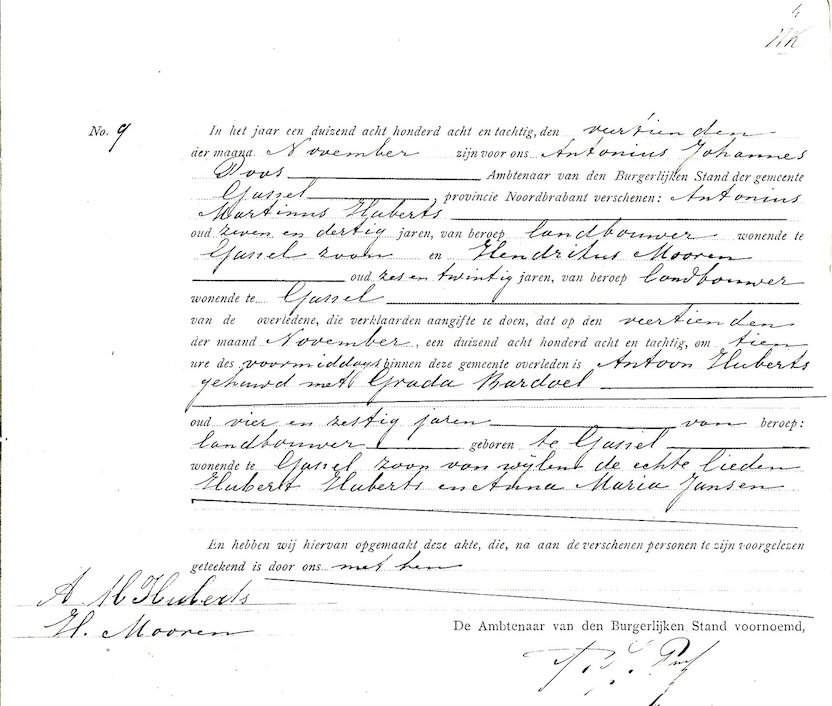 4
No. 9
In het jaar een duizend acht honderd acht en tachtig, den viertienden
der maand November zijn voor ons Antonius Johannes
Poos Ambtenaar van den Burgerlijken Stand der gemeente
Gassel, provincie Noordbrabant verschenen: Antonius
Martinus Huberts
oud zeven en dertig jaren, van beroep landbouwer wonende te
Gassel zoon en Hendrikus Mooren
oud zes en twintig jaren, van beroep landbouwer
wonende te Gassel
van de overledene, die verklaarden aangifte te doen, dat op den viertienden
der maand November, een duizend acht honderd acht en tachtig, om tien
ure des voormiddags binnen deze gemeente overleden is Antoon Huberts
gehuwd met Grada Bardoel
oud vier en zestig jaren van beroep:
landbouwer geboren te Gassel
wonende te Gassel zoon van wijlen de echte lieden
Hubert Huberts en Anna Maria Jansen
En hebben wij hiervan opgemaakt deze akte, die, na aan de verschenen personen te zijn voorgelezen
geteekend is door ons met hen
A. M Huberts
H. Mooren
De Ambtenaar van den Burgerlijken Stand voornoemd,